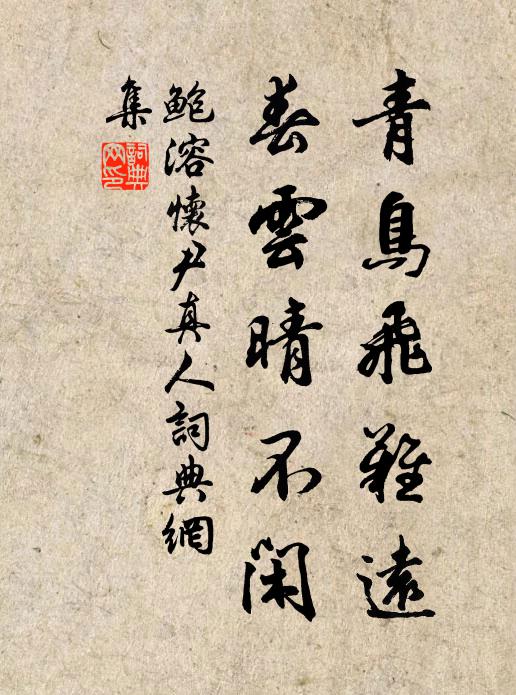 青鳥飛難遠
春雲晴不閑
鮑溶懷尹真人詞典網
集
詞典
网印